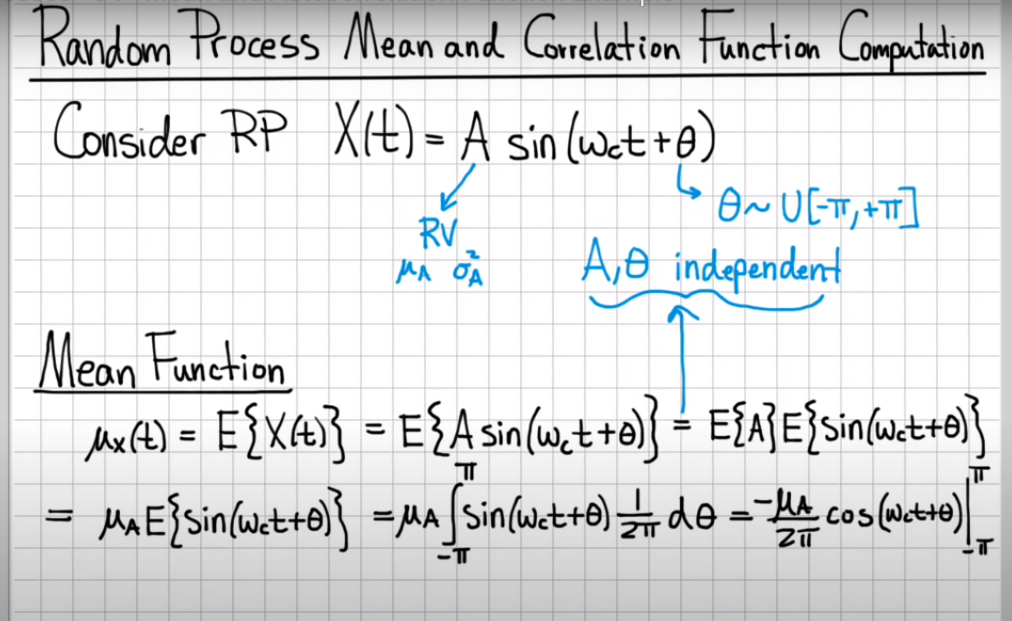 Random Process Mean and Correlation Function Computation
Consider RP X(t) = A sin(ω_c t + θ)
θ ~ U[-π, +π]
RV
μ_A σ_A^2
A, θ independent
Mean Function
μ_x(t) = E{X(t)} = E{A sin(ω_c t + θ)} = E{A}E{sin(ω_c t + θ)}
= μ_A E{sin(ω_c t + θ)} = μ_A ∫_{-π}^{π} sin(ω_c t + θ) 1/2π dθ = -μ_A/2π cos(ω_c t + θ)|_{-π}^{π}